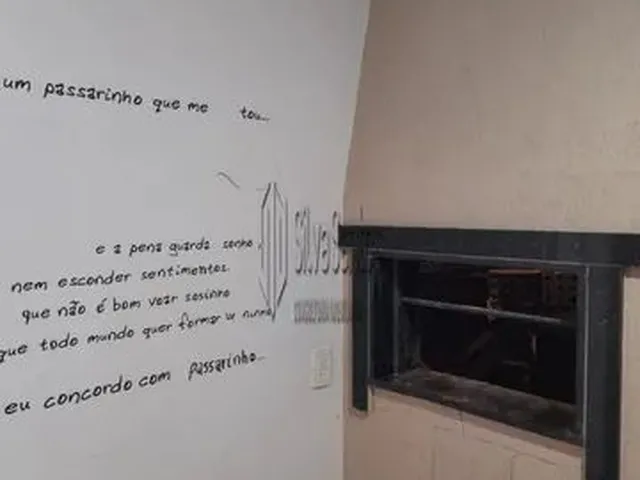 um passarinho que me tou...
e a pena guarda sonho,
nem esconder sentimentos
que não é bom voar sosinho
que todo mundo quer formar
eu concordo com passarinho...
SilvaSa